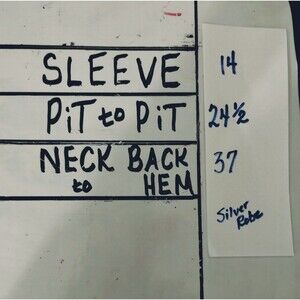 SLEEVE 14
PiT to PiT 24 1/2
NECK BACK 37
to HEM
Silver
Robe